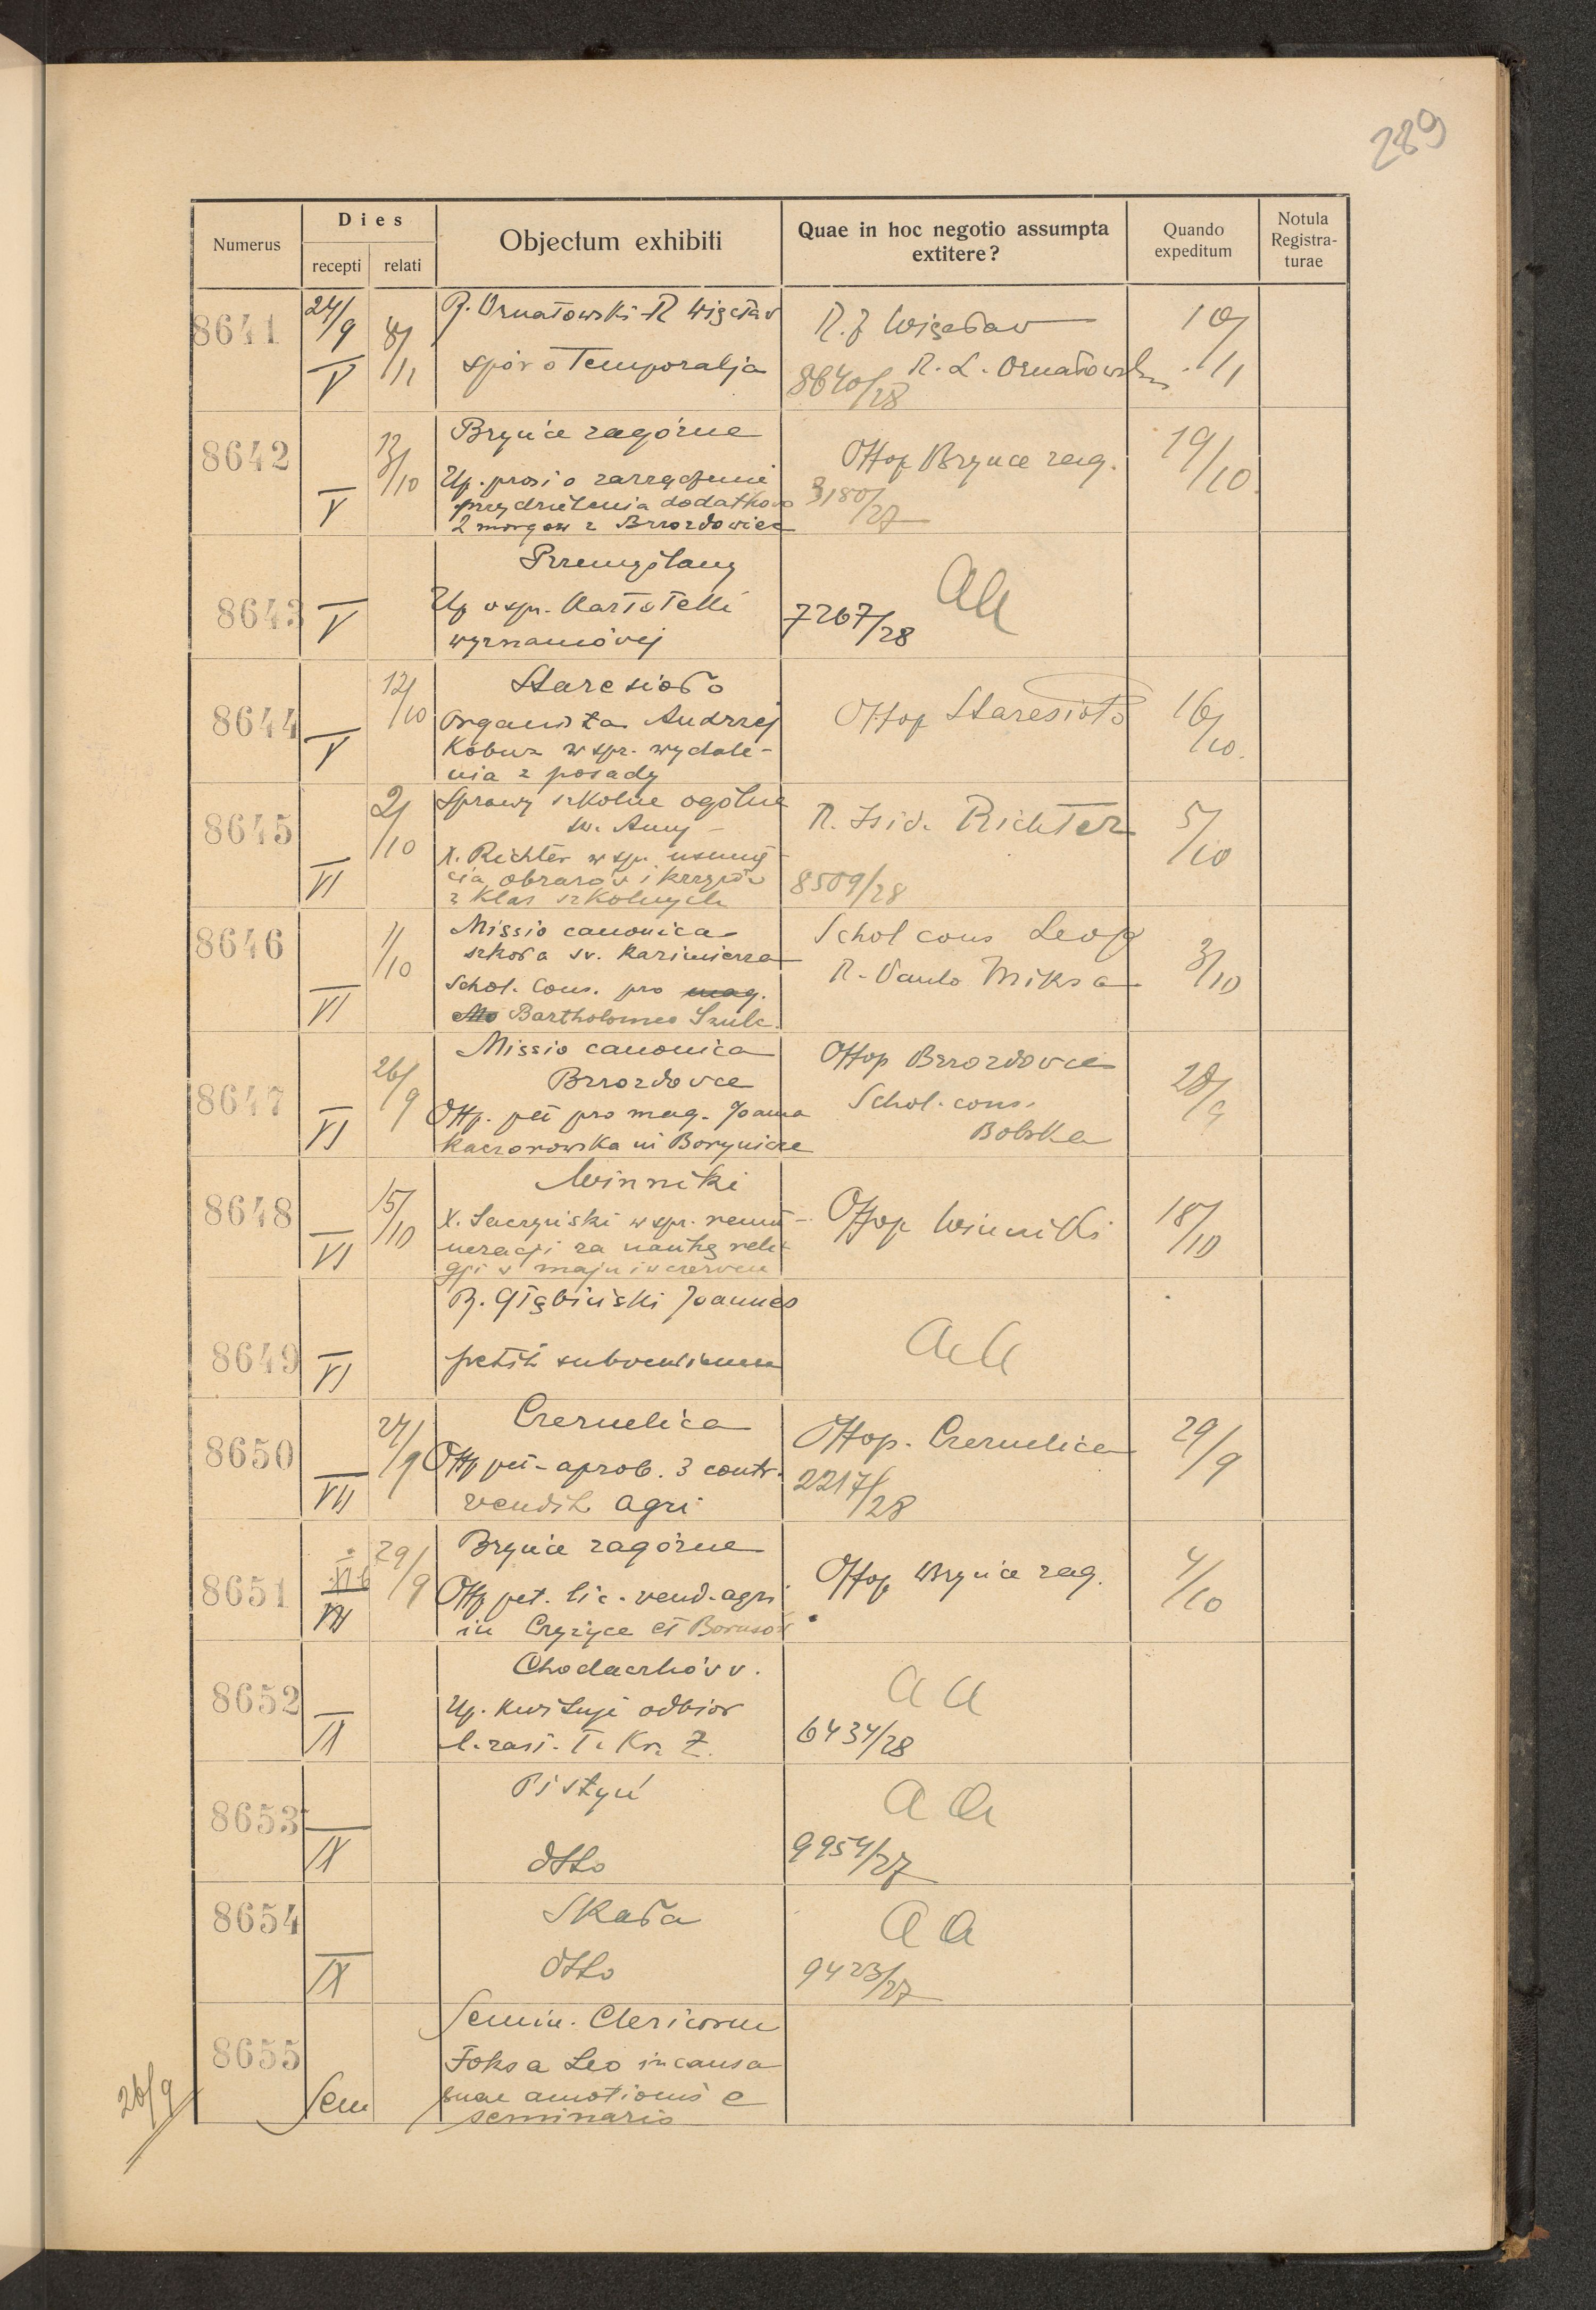 289
Numerus
Dies
recepti
relati
Objectum exhibiti
Quae in hoc negotio assumpta
extitere?
Quando
expeditum
Notula
Registra-
turae
8641
24/9
V
8/11
R. Ornatowski - R. Więcław
spór o Temporalja
R. J. Więcław
R. L. Ornatowski
8640/28
10/11
8642
V
13/10
Brynce zagórne
Up. prosi o zarządzenie
przydzielenia dodatkowo
2 morgów z Brzozdowiec
Offop Brynce zag.
3180/27
19/10
8643
V
Przemyślany
Up w spr. Kartoteki
wyznaniowej
aa
7267/28
8644
V
12/10
Staresioło
Organista Andrzej
w spr. wydale-
nia z posady
Offop Staresioło
16/10
8645
VI
2/10
Sprawy szkolne ogólne
św. Anny
X. Richter w spr. usunię-
cia obrazów i krzyżów
z klas szkolnych
R. Isid. Richter
8509/28
5/10
8646
VI
1/10
Missio canonica
szkoła św. Kazimierza
Schol. Cons. pro mag.
Bartholomeo Szulc
Schol cons Leop
R. Paulo Miksa
3/10
8647
VI
26/9
Missio canonica
Brzozdowce
Offp. pet pro mag. Joanna
Kaczorowska in Borynicze
Offop Brzozdowce
Schol. cons.
Bobrka
28/9
8648
VI
15/10
Winniki
X. w spr. remu-
neracji za naukę reli-
gji w maju i w czerwcu
Offop Winniki
18/10
8649
VI
R. Głębiński Joannes
petit subventionem
aa
8650
VII
24/9
Czernelica
Offp pet. aprob. 3 contr.
vendit. agri
Offop. Czernelica
2217/28
29/9
8651
VII
29/9
Brynce zagórne
Offp pet. lic. vend. agri
in Czyżyce et Borusów
Offop Brynce zag.
4/10
8652
IX
Chodaczków w.
Up. kwituje odbiór
l. zasi. T. Kr. Z.
aa
6434/28
8653
IX
Pistyń
dtto
aa
9954/27
8654
IX
Skała
dtto
aa
9423/27
8655
Sem
Semin. Clericorum
Foksa Leo in causa
suae amotionis e
seminario
26/9